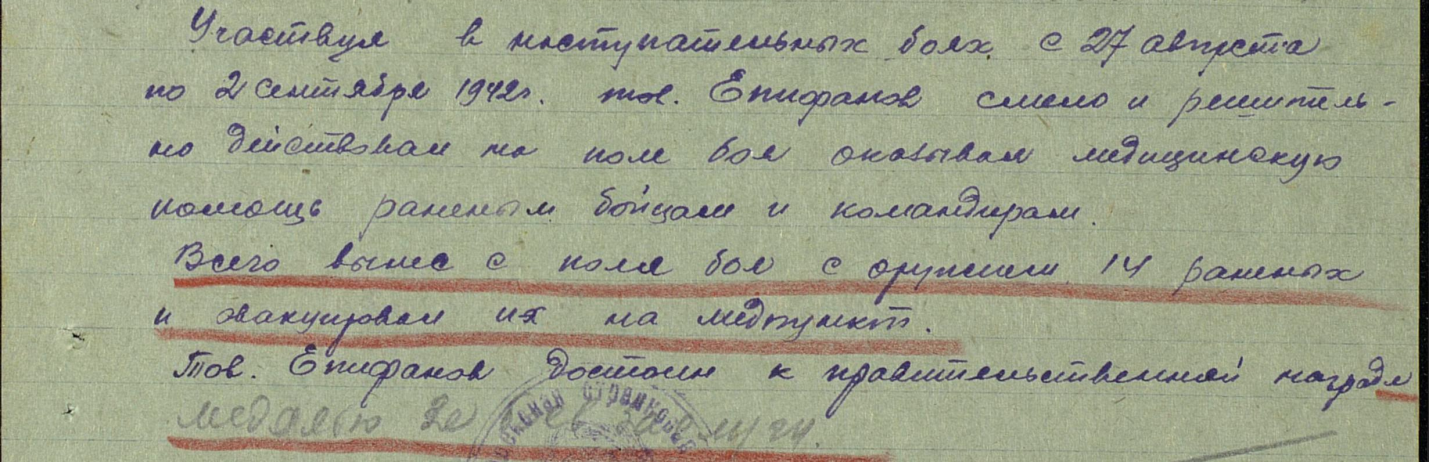 Участвуя в наступательных боях с 27 августа
по 2 сентября 1942г. тов. Епифанов смело и решитель-
но действовал на поле боя оказывал медицинскую
помощь раненым бойцам и командирам.
Всего вынес с поля боя с оружием 14 раненых
и эвакуировал их на медпункт.
Тов. Епифанов достоин к правительственной награде
медалью За боев заслуги.
стрелковая